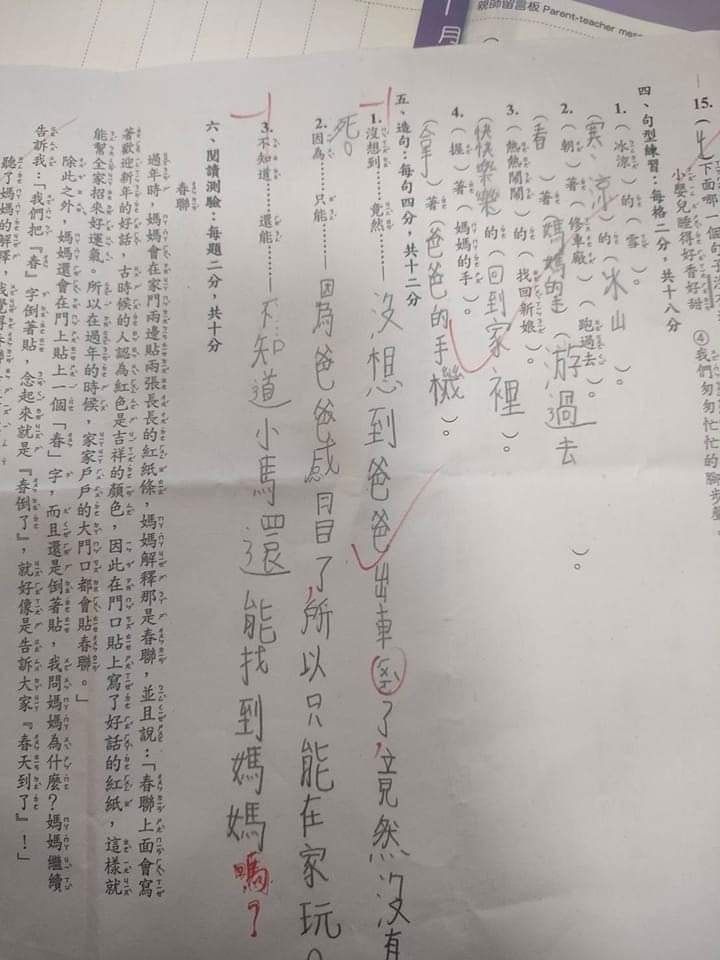 親師留言板 Parent-teacher
月
15.（4）下面哪一個句
小嬰兒睡得好香好甜 ④我們匆匆忙忙的腳步聲
四、句型練習：每格二分，共十八分
1.（冰涼）的（雪）。
（寒、涼）的（冰山）。
2.（朝）著（修車廠）（跑過去）。
（看）著（媽媽的）（游過去）。
3.（熱熱鬧鬧）的（找回新娘）。
（快快樂樂）的（回到家裡）。
4.（握）著（媽媽的手）。
（拿）著（爸爸的手機）。
五、造句：每句四分，共十二分
1.沒想到……竟然……沒想到爸爸出車了,竟然沒有
死。
2.因為……只能……因為爸爸感冒了,所以只能在家玩。
3.不知道……還能……不知道小馬還能找到媽媽嗎?
六、閱讀測驗：每題二分，共十分
春聯
過年時，媽媽會在家門兩邊貼兩張長長的紅紙條，媽媽解釋那是春聯，並且說：「春聯上面會寫
著歡迎新年的好話，古時候的人認為紅色是吉祥的顏色，因此在門口貼上寫了好話的紅紙，這樣就
能幫全家招來好運氣。所以在過年的時候，家家戶戶的大門口都會貼春聯。」
除此之外，媽媽還會在門上貼上一個「春」字，而且還是倒著貼，我問媽媽為什麼？媽媽繼續
告訴我：「我們把『春』字倒著貼，念起來就是『春倒了』，就好像是告訴大家『春天到了』！」
聽了媽媽的解釋，我覺得春聯